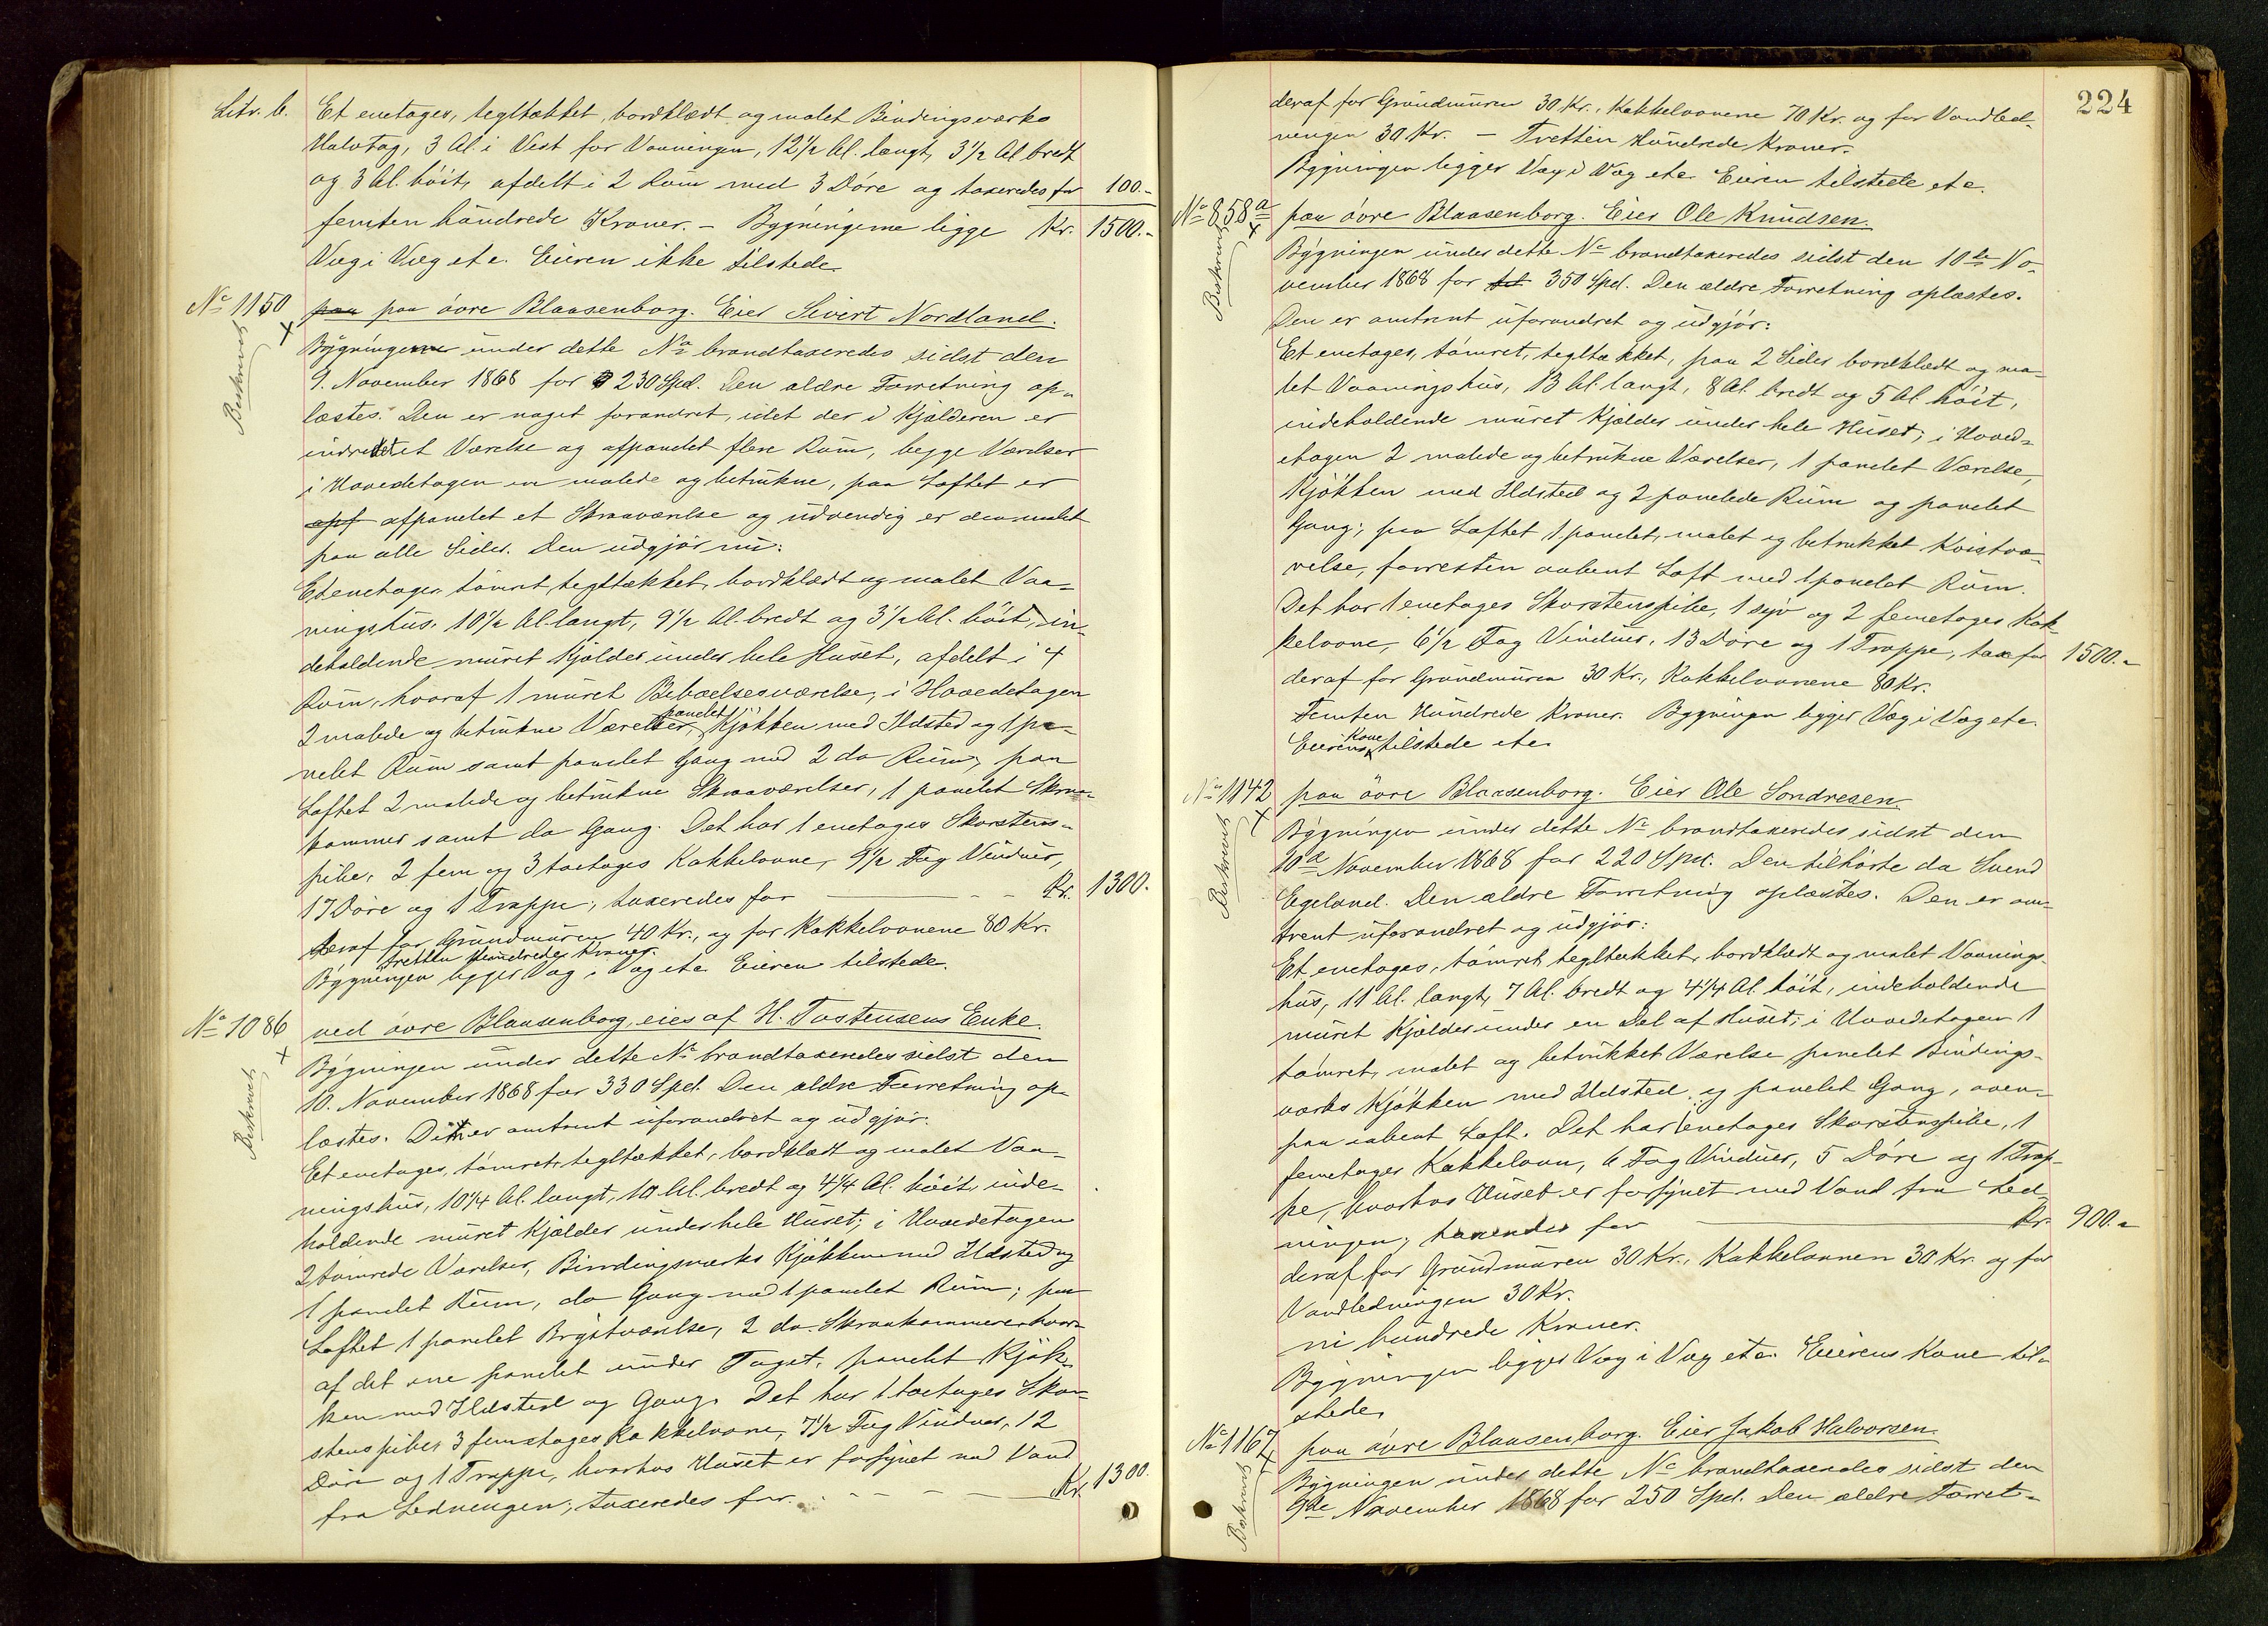 Litr. b. Et enetages, tegltækket, bordklædt og malet Bindingsværks
Halvtag, 3 Al. i Vest for Vaaningen, 12 1/2 Al. langt, 3 1/2 Al. bredt
og 3 Al. høit, afdelt i 2 Rum med 3 Døre og taxeredes for 100.-
femten hundrede Kroner. - Bygningerne ligge Kr. 1500.-
Væg i Væg etc. Eieren ikke tilstede.
No 1150 paa paa øvre Blaasenborg. Eier Sivert Nordland.
Beskrevet
Bygningerne under dette No brandtaxeredes sidst den
9. November 1868 for 230 Spd. Den ældre Forretning op-
læstes. Den er noget forandret, idet der i Kjælderen er
indredet et Værelse og afpanelet flere Rum, begge Værelser
i Hovedetagen er malede og betrukne, paa Loftet er
apf afpanelet et Skraaværelse og udvendig er den malet
paa alle Sider. Den udgjør nu:
Et enetages tømret, tegltækket, bordklædt og malet Vaa-
ningshus, 10 1/2 Al. langt, 9 1/2 Al. bredt og 3 1/2 Al. høit, in-
deholdende muret Kjælder under hele Huset, afdelt i 4
Rum, hvoraf 1 muret Beboelsesværelse, i Hovedetagen
2 malede og betrukne Værelser, panelet Kjøkken med Ildsted og 1 pa-
nelet Rum samt panelet Gang med 2 do Rum, paa
Loftet 2 malede og betrukne Skraaværelser, 1 panelet Skraa-
kammer samt do Gang. Det har 1 enetages Skorstens-
pibe, 2 fem og 3 toetages Kakkelovne, 9 1/2 Fag Vinduer,
17 Døre og 1 Trappe, taxeredes for Kr. 1300.-
deraf for Grundmuren 40 Kr., og for Kakkelovnene 80 Kr.
tretten Hundrede Kroner.
Bygningen ligger Væg i Væg etc. Eieren tilstede.
No 1086 ved øvre Blaasenborg, eies af H. Tostensens Enke.
Beskrevet
Bygningen under dette No brandtaxeredes sidst den
10. November 1868 for 330 Spd. Den ældre Forretning op-
læstes. Den er omtrent uforandret og udgjør:
Et enetages, tømret, tegltækket, bordklædt og malet Vaa-
ningshus, 10 1/4 Al. langt, 10 Al. bredt og 4 1/4 Al. høit, inde-
holdende muret Kjælder under hele Huset; i Hovedetagen
2 tømrede Værelser, Bindingsværks Kjøkken med Ildsted og
1 panelet Rum, do Gang med 1 panelet Rum; paa
Loftet 1 panelet Brystværelse, 2 do. Skraakammere hvor-
af det ene panelet under Taget, panelet Kjøk-
ken med Ildsted og Gang. Det har 1 toetages Skor-
stenspibe, 3 femetages Kakkelovne, 7 1/2 Fag Vinduer, 12
Døre og 1 Trappe, hvorhos Huset er forsynet med Vand
fra Ledningen; taxeredes for Kr. 1300.
224
deraf for Grundmuren 30 Kr., Kakkelovnene 70 Kr. og for Vandled-
ningen 30 Kr. - Tretten Hundrede Kroner.
Bygningen ligger Væg i Væg etc. Eieren tilstede etc.
No 858 a paa øvre Blaasenborg. Eier Ole Knudsen.
Beskrevet
Bygningen under dette No brandtaxeredes sidst den 10de No-
vember 1868 for 350 Spd. Den ældre Forretning oplæstes.
Den er omtrent uforandret og udgjør:
Et enetages, tømret, tegltækket, paa 2 Sider bordklædt og ma-
let Vaaningshus, 13 Al. langt, 8 Al. bredt og 5 Al. høit,
indeholdende muret Kjælder under hele Huset; i Hoved-
etagen 2 malede og betrukne Værelser, 1 panelet Værelse,
Kjøkken med Ildsted og 2 panelede Rum og panelet
Gang; paa Loftet 1 panelet, malet og betrukket Kvistvæ-
relse, forresten aabent Loft med 1 panelet Rum.
Det har 1 enetages Skorstenspibe, 1 syv og 2 femetages Kak-
kelovne, 6 1/2 Fag Vinduer, 13 Døre og 1 Trappe, tax for 1500.-
deraf for Grundmuren 30 Kr., Kakkelovnene 80 Kr.
Femten Hundrede Kroner. Bygningen ligger Væg i Væg etc.
Eierens Kone tilstede etc.
No 1142 paa øvre Blaasenborg. Eier Ole Sondresen.
Beskrevet
Bygningen under dette No brandtaxeredes sidst den
10de November 1868 for 220 Spd. Den tilhørte da Svend
Egeland. Den ældre Forretning oplæstes. Den er om-
trent uforandret og udgjør:
Et enetages, tømret, tegltækket, bordklædt og malet Vaanings-
hus, 11 Al. langt, 7 Al. bredt og 4 1/4 Al. høit, indeholdende
muret Kjælder under en Del af Huset; i Hovedetagen 1
tømret, malet og betrukket Værelse panelet Bindings-
værks Kjøkken med Ildsted og panelet Gang, oven-
paa aabent Loft. Det har 1 enetages Skorstenspibe, 1
femetages Kakkelovn, 6 Fag Vinduer, 5 Døre og 1 Trap-
pe, hvorhos Huset er forsynet med Vand fra Led-
ningen; taxeredes for Kr. 900.-
deraf for Grundmuren 30 Kr., Kakkelovnen 30 Kr. og for
Vandledningen 30 Kr.
ni hundrede Kroner.
Bygningen ligger Væg i Væg etc. Eierens Kone til-
stede.
No 1167 paa øvre Blaasenborg. Eier Jakob Halvorsen.
Beskrevet
Bygningen under dette No brandtaxeredes sidst den
9de November 1868 for 250 Spd. Den ældre Forret-